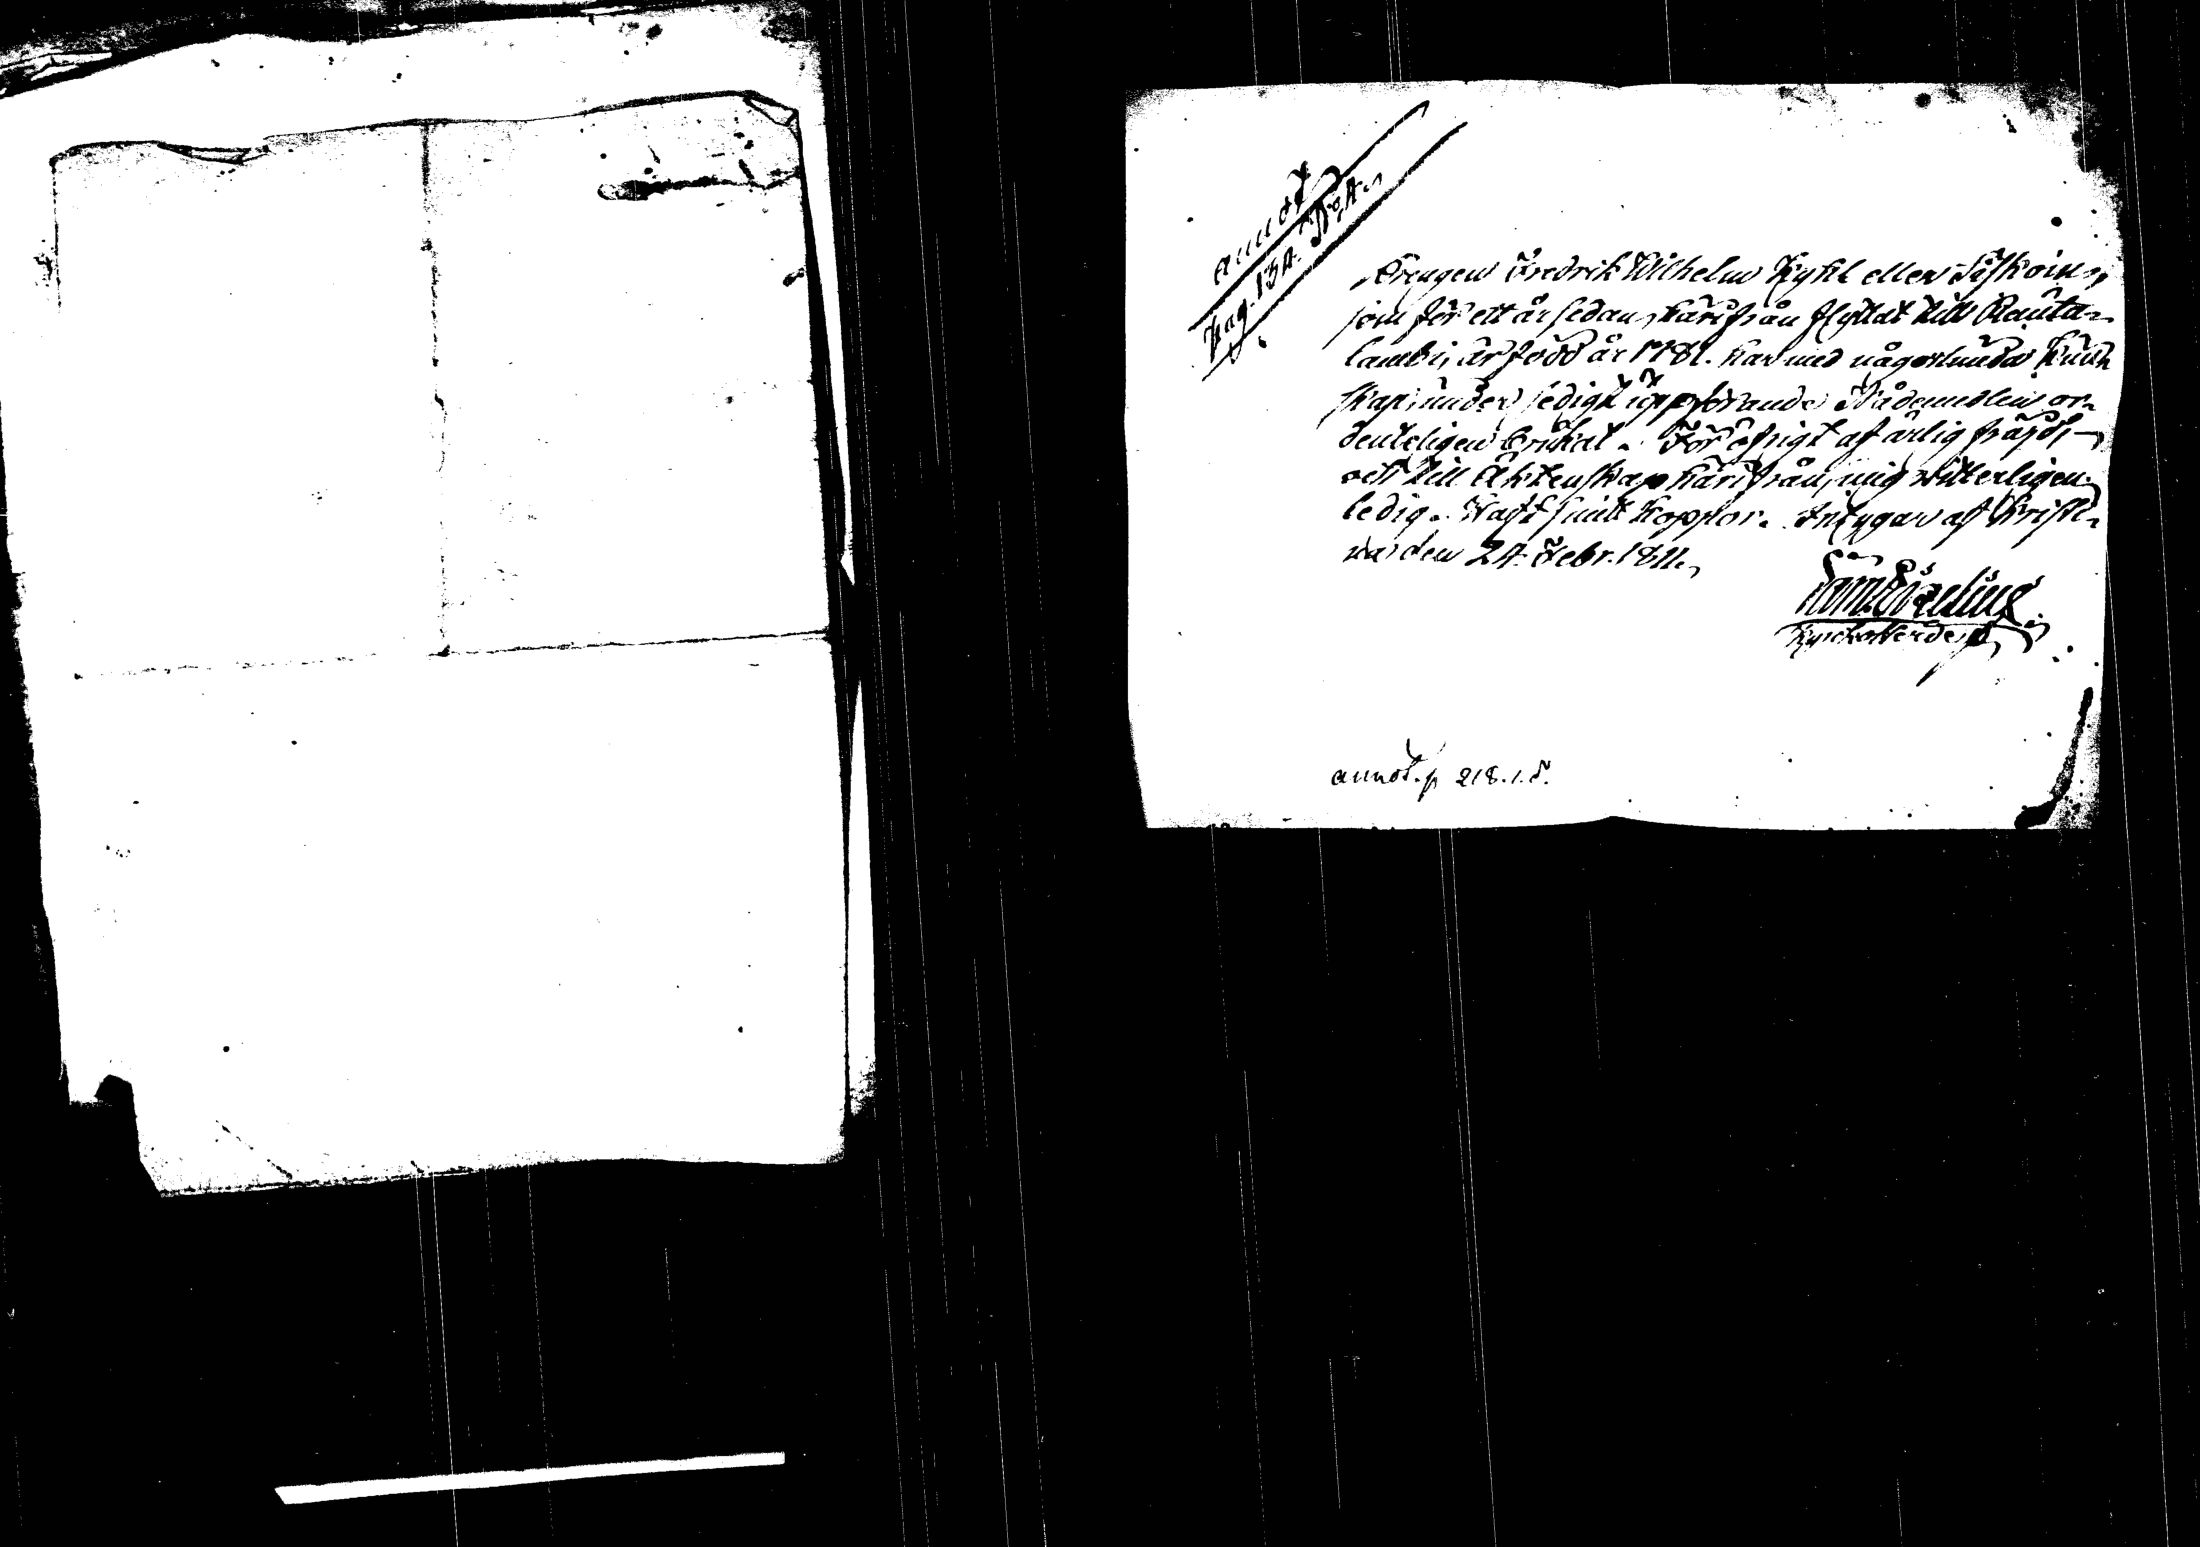 annot
Pag. 134. N:o 4.
Drengen Fredrik Wilhelm eller
som för ett år sedan härifrån flyttat till Rauta-
lambi, är född år 1781. har med någorlunda kun-
skap, under sedigt uppförande Nådemedlen or-
denteligen brukat. För öfrigt af ärlig fräjd,
och till Äktenskap härifrån, mig witterligen
ledig. Haft smitt koppor. Intygar af Christi-
na den 24. Febr. 1811.
Kyrkoherde
annot. p 218. 1. d.